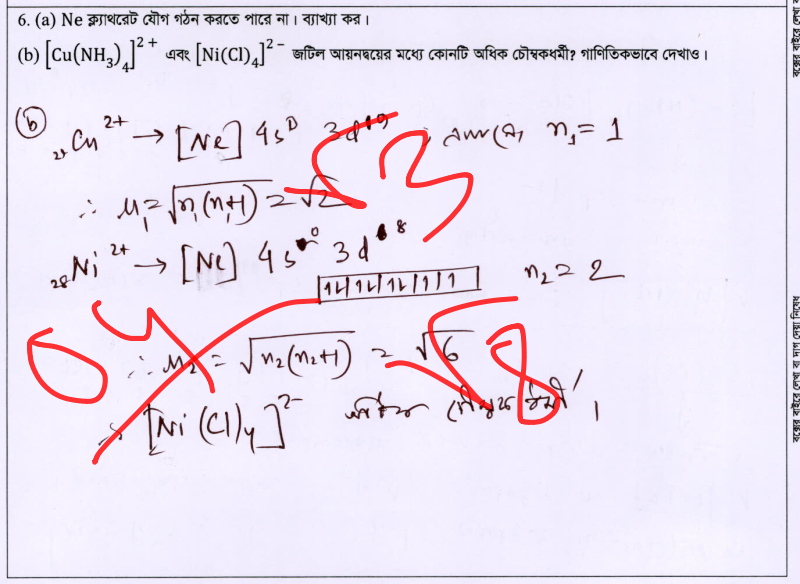 6. (a) Ne ক্ল্যাথরেট যৌগ গঠন করতে পারে না। ব্যাখ্যা কর।
(b) [Cu(NH₃)₄]²⁺ এবং [Ni(Cl)₄]²⁻ জটিল আয়নদ্বয়ের মধ্যে কোনটি অধিক চৌম্বকধর্মী? গাণিতিকভাবে দেখাও।
(b) ₂₉Cu²⁺ → [Ne] 4s⁰ 3d⁹ ; n₁ = 1
∴ μ₁ = √n₁(n₁+1) = √2
√3
₂₈Ni²⁺ → [Ne] 4s⁰ 3d⁸
1L 1L 1L 1 1 n₂ = 2
04
∴ μ₂ = √n₂(n₂+1) = √6
√8
⇒ [Ni(Cl)₄]²⁻ অধিক চৌম্বকধর্মী।
বক্সের বাইরে লেখা বা দাগ দেয়া নিষেধ